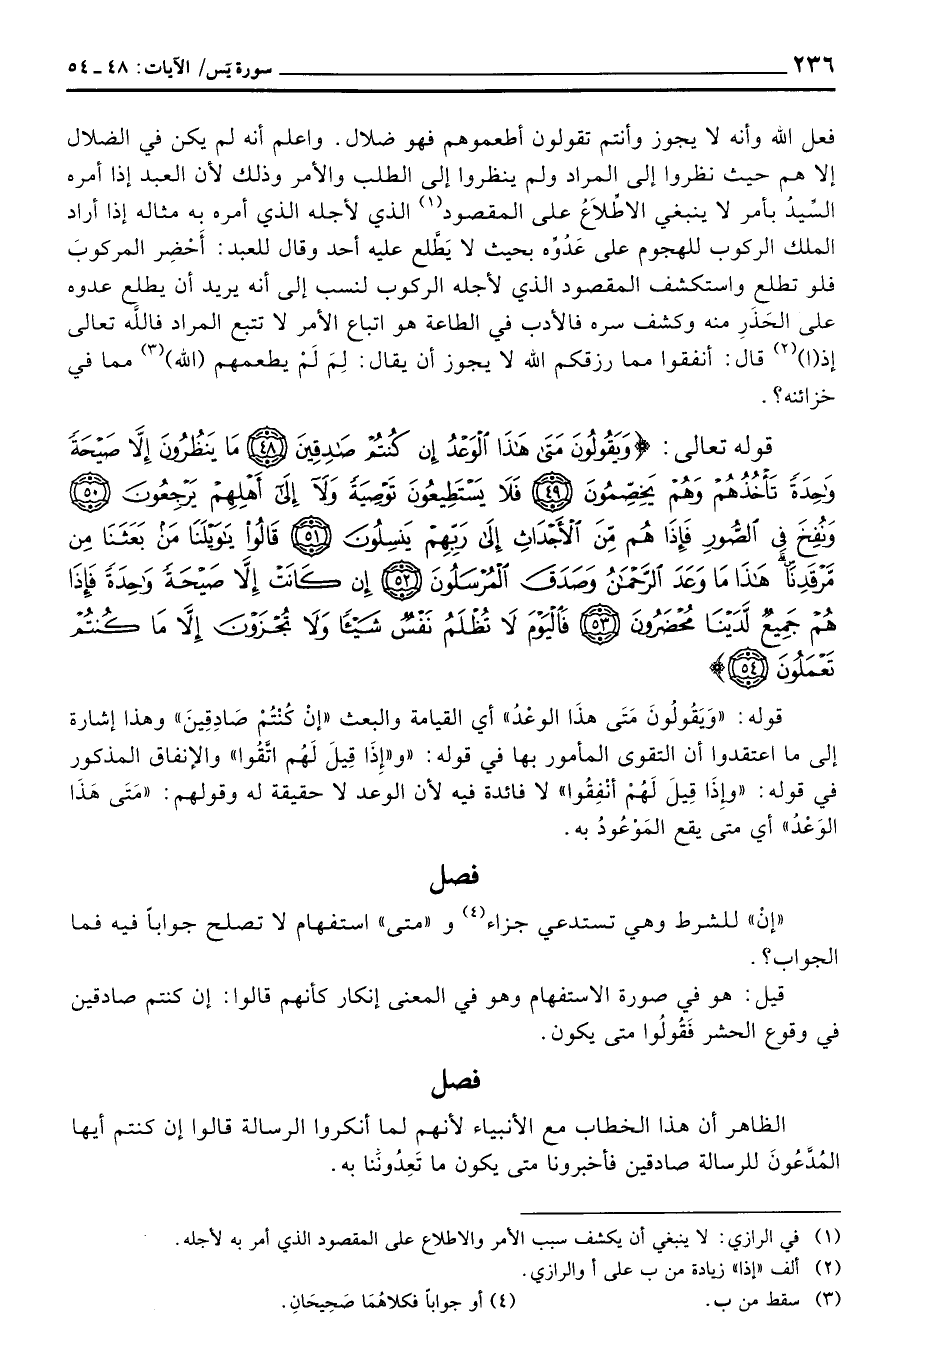 ٢٣٦ سورة يَس/ الآيات: ٤٨ ـ ٥٤
فعل الله وأنه لا يجوز وأنتم تقولون أطعموهم فهو ضلال. واعلم أنه لم يكن في الضلال
إلا هم حيث نظروا إلى المراد ولم ينظروا إلى الطلب والأمر وذلك لأن العبد إذا أمره
السِّيدُ بأمر لا ينبغي الاطْلاَعُ على المقصود(١) الذي لأجله الذي أمره به مثاله إذا أراد
الملك الركوب للهجوم على عَدُوِّه بحيث لا يَطَّلع عليه أحد وقال للعبد: أَحْضِر المركوبَ
فلو تطلع واستكشف المقصود الذي لأجله الركوب لنسب إلى أنه يريد أن يطلع عدوه
على الحَذَرِ منه وكشف سره فالأدب في الطاعة هو اتباع الأمر لا تتبع المراد فاللَّه تعالى
إذ(ا)(٢) قال: أنفقوا مما رزقكم الله لا يجوز أن يقال: لِمَ لَمْ يطعمهم (الله)(٣) مما في
خزائنه؟.
قوله تعالى: ﴿وَيَقُولُونَ مَتَىٰ هَٰذَا ٱلْوَعْدُ إِن كُنتُمْ صَٰدِقِينَ ٤٨ مَا يَنظُرُونَ إِلَّا صَيْحَةً
وَٰحِدَةً تَأْخُذُهُمْ وَهُمْ يَخِصِّمُونَ ٤٩ فَلَا يَسْتَطِيعُونَ تَوْصِيَةً وَلَآ إِلَىٰٓ أَهْلِهِمْ يَرْجِعُونَ ٥٠
وَنُفِخَ فِى ٱلصُّورِ فَإِذَا هُم مِّنَ ٱلْأَجْدَاثِ إِلَىٰ رَبِّهِمْ يَنسِلُونَ ٥١ قَالُوا۟ يَٰوَيْلَنَا مَنۢ بَعَثَنَا مِن
مَّرْقَدِنَا ۗ هَٰذَا مَا وَعَدَ ٱلرَّحْمَٰنُ وَصَدَقَ ٱلْمُرْسَلُونَ ٥٢ إِن كَانَتْ إِلَّا صَيْحَةً وَٰحِدَةً فَإِذَا
هُمْ جَمِيعٌ لَّدَيْنَا مُحْضَرُونَ ٥٣ فَٱلْيَوْمَ لَا تُظْلَمُ نَفْسٌ شَيْـًٔا وَلَا تُجْزَوْنَ إِلَّا مَا كُنتُمْ
تَعْمَلُونَ ٥٤﴾
قوله: «وَيَقُولُونَ مَتَى هذَا الوعْدُ» أي القيامة والبعث «إنْ كُنْتُمْ صَادِقِينَ» وهذا إشارة
إلى ما اعتقدوا أن التقوى المأمور بها في قوله: «و«إِذَا قِيلَ لَهُم اتَّقُوا» والإنفاق المذكور
في قوله: «وإِذَا قِيلَ لَهُمْ أنْفِقُوا» لا فائدة فيه لأن الوعد لا حقيقة له وقولهم: «مَتَى هَذَا
الوَعْدُ» أي متى يقع المَوْعُودُ به.
فصل
«إنْ» للشرط وهي تستدعي جزاء(٤) و «متى» استفهام لا تصلح جواباً فيه فما
الجواب؟.
قيل: هو في صورة الاستفهام وهو في المعنى إنكار كأنهم قالوا: إن كنتم صادقين
في وقوع الحشر فَقُولُوا متى يكون.
فصل
الظاهر أن هذا الخطاب مع الأنبياء لأنهم لما أنكروا الرسالة قالوا إن كنتم أيها
المُدَّعُونَ للرسالة صادقين فأخبرونا متى يكون ما تَعِدُونَنا به.
(١) في الرازي: لا ينبغي أن يكشف سبب الأمر والاطلاع على المقصود الذي أمر به لأجله.
(٢) ألف «إذا» زيادة من ب على أ والرازي.
(٣) سقط من ب. (٤) أو جواباً فكلاهُمَا صَحِيحَانِ.